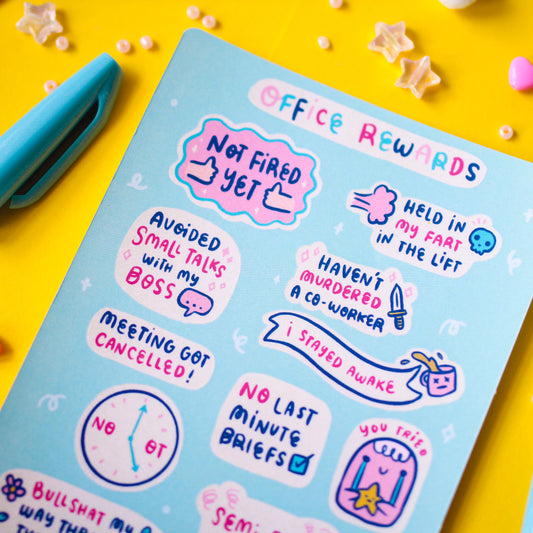 OFFICE REWARDS
NOT FIRED
YET
HELD IN
MY FART
IN THE LIFT
AVOIDED
SMALL TALKS
WITH MY
BOSS
HAVEN'T
MURDERED
A CO-WORKER
MEETING GOT
CANCELLED!
I STAYED AWAKE
NO OT
NO LAST
MINUTE
BRIEFS
YOU TRIED
BULLSHAT MY